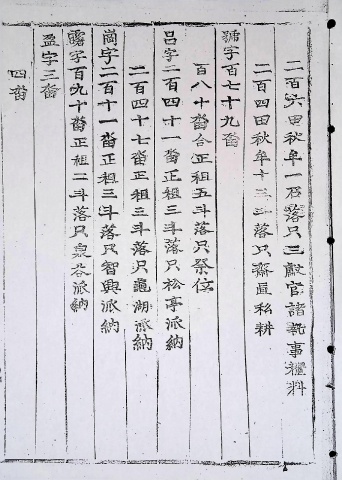 二百六田秋牟一石落只三獻官諸執事粮料
二百四田秋牟十三斗落只齋直私耕
號字百七十九畓
百八十畓合正租五斗落只祭位
呂字二百四十一畓正租三斗落只松亭派納
二百四十七畓正租三斗落只龜湖派納
崗字二百十一畓正租三斗落只智興派納
露字百九十畓正租二斗落只泉谷派納
盈字三畓
四畓